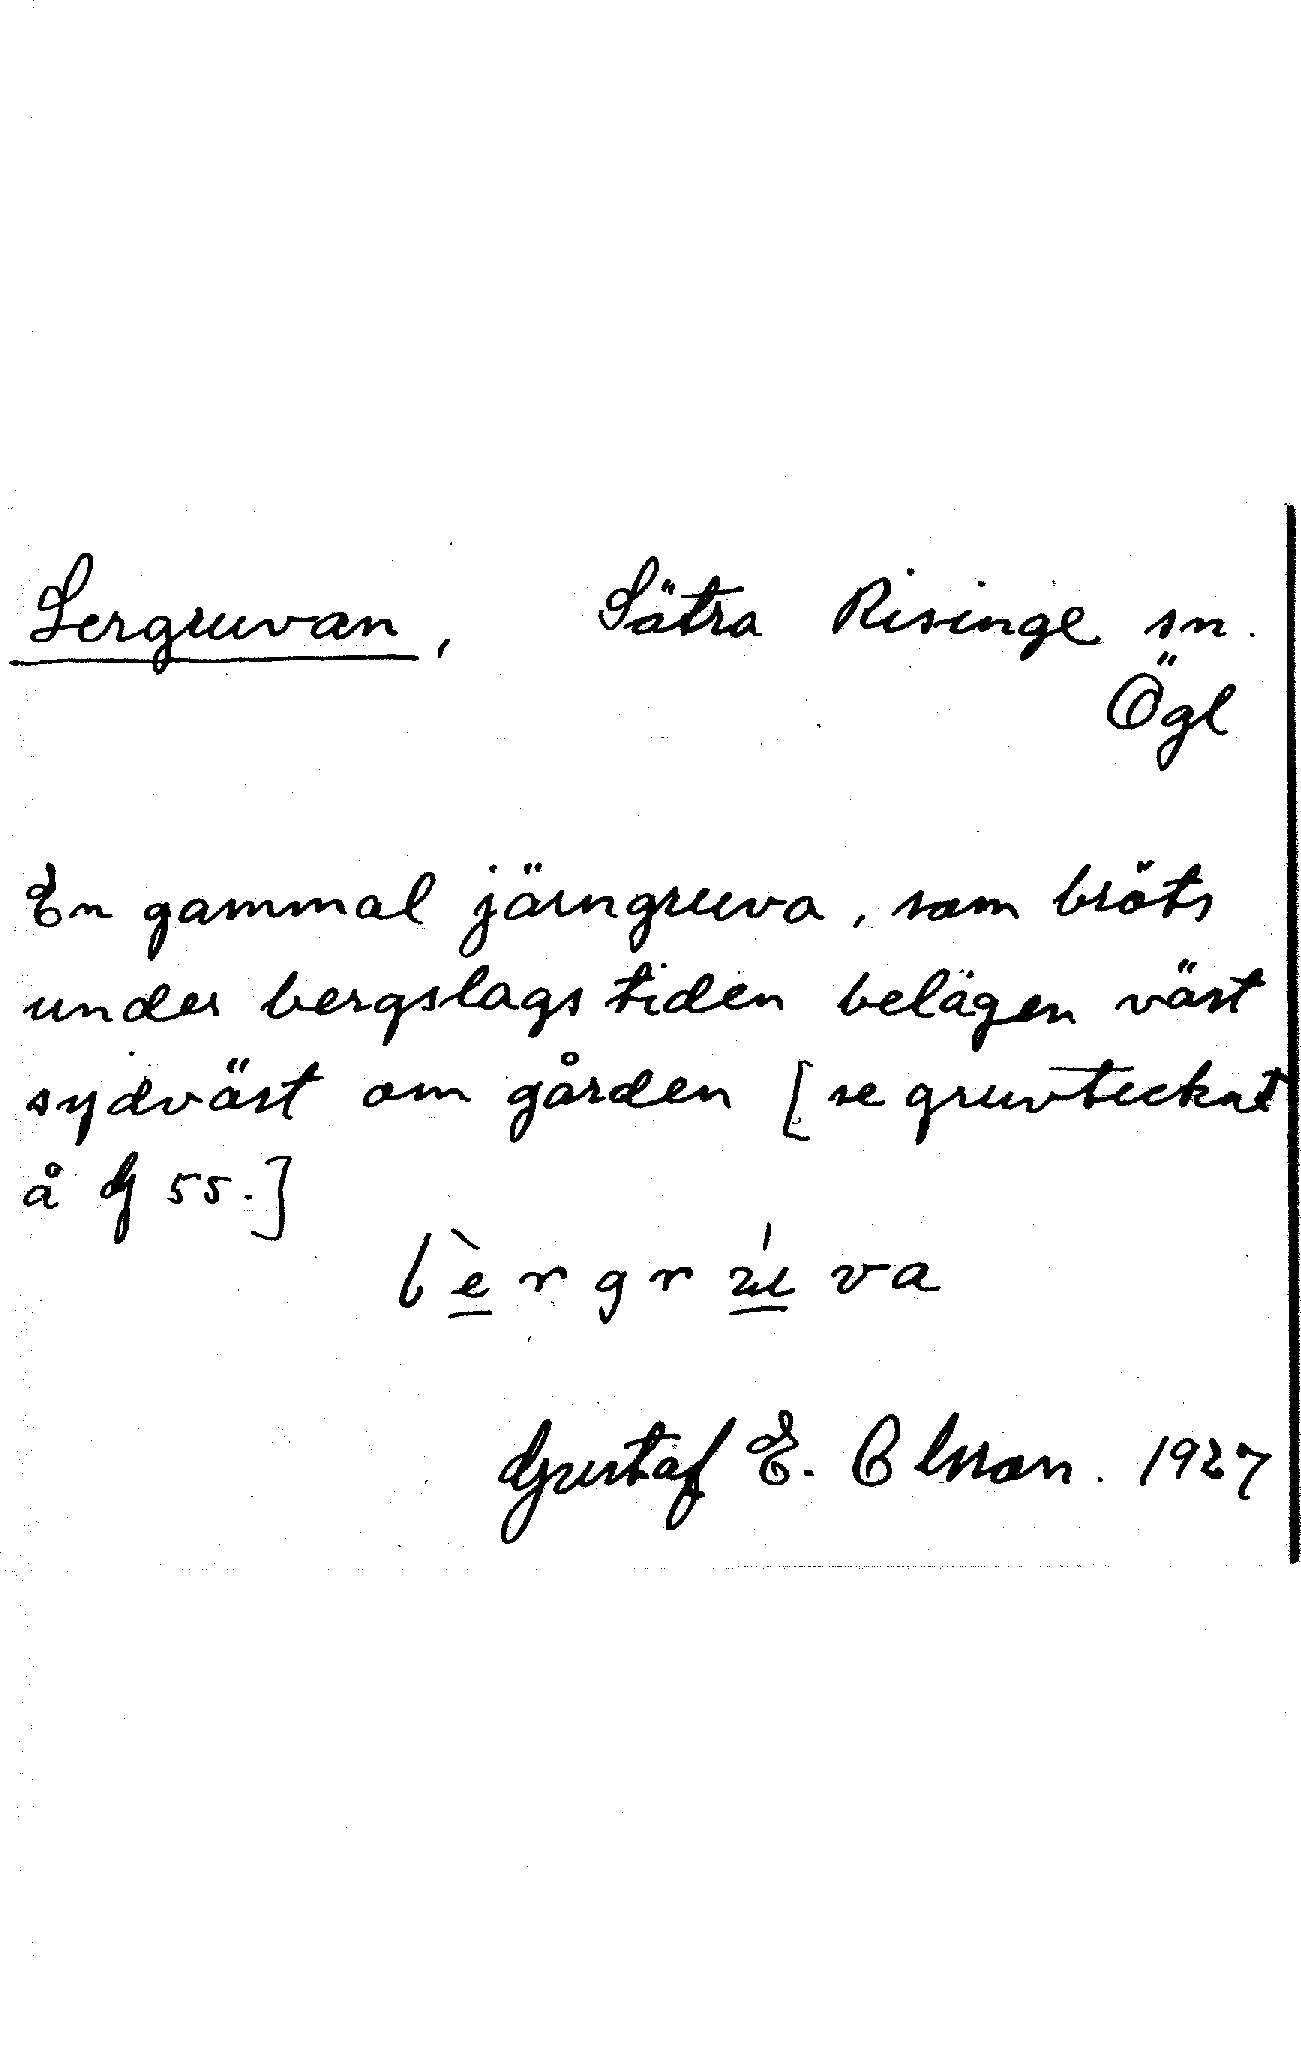 Lergruvan, Sätra Risinge sn.
Ögl
En gammal järngruva, som bröts
under bergslagstiden belägen väst
sydväst om gården [se gruvtecknet
å G 55.]
lèrgrúva
Gustaf E. Olsson. 1927